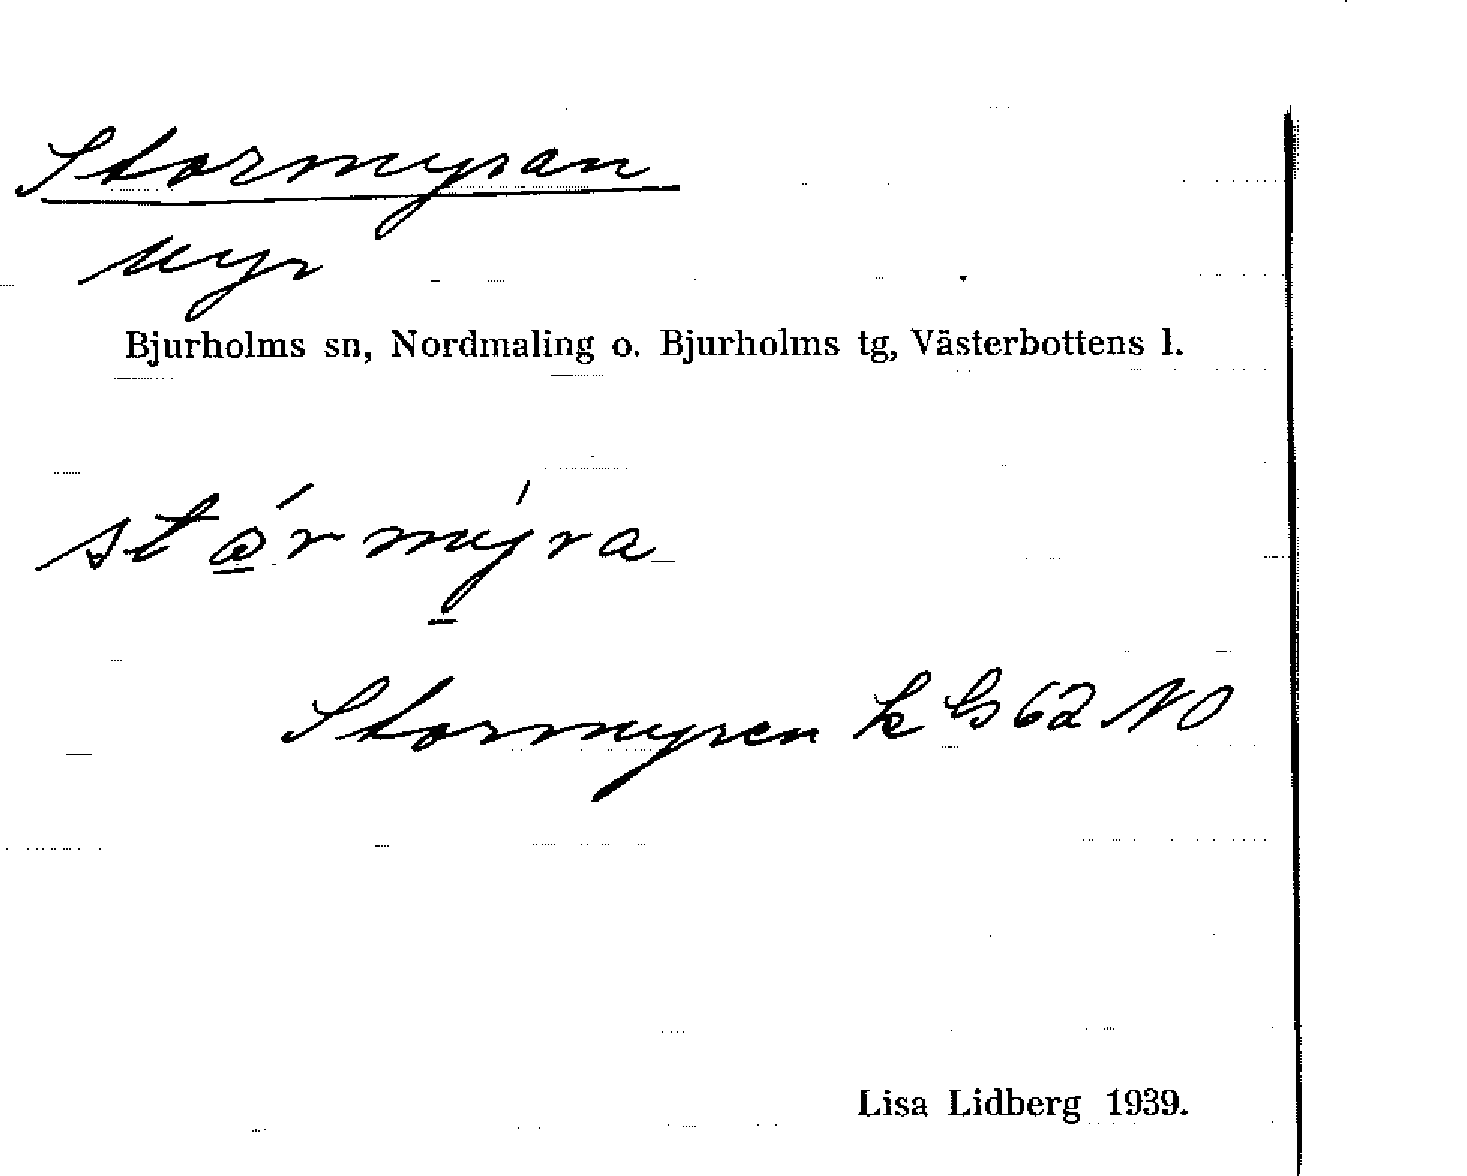 Stormyran
myr
Bjurholms sn, Nordmaling o. Bjurholms tg, Västerbottens l.
Stormyren k G 62 NO
Lisa Lidberg 1939.